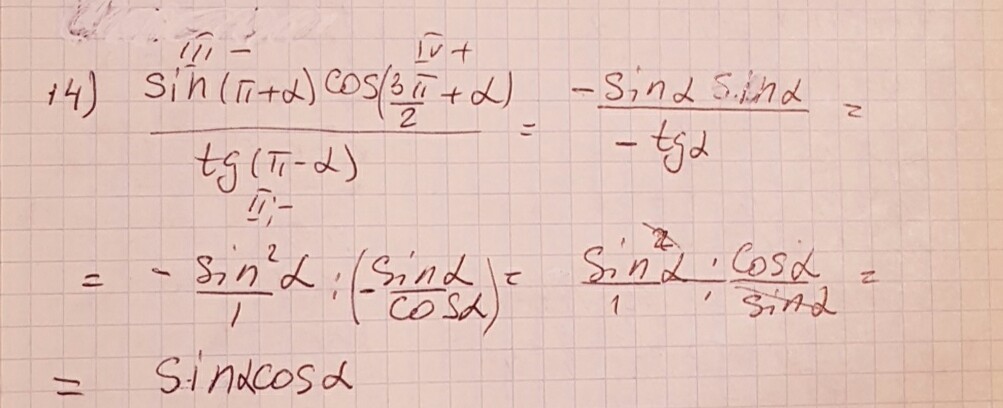 III - IV +
14) sin(π+α) cos(3π/2 + α) / tg(π-α) = -sinα sinα / -tgα =
II; -
= - sin²α/1 : (-sinα/cosα) = sin²α/1 · cosα/sinα =
= sinαcosα